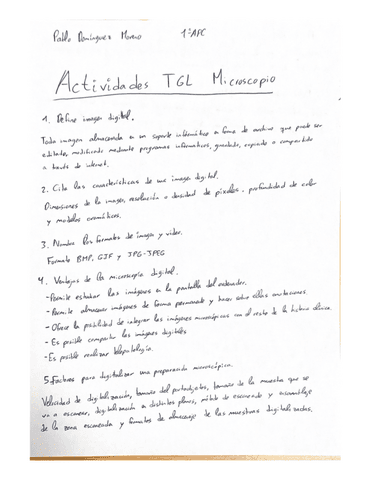 Pablo Domínguez Moreno 1ºAPC
Actividades TGL Microscopio
1. Define imagen digital.
Toda imagen almacenada en un soporte informático en forma de archivo que puede ser
editado, modificado mediante programas informáticos, guardado, copiado o compartido
a través de internet.
2. Cita las características de una imagen digital.
Dimensiones de la imagen, resolución o densidad de píxeles, profundidad de color
y modelos cromáticos.
3. Nombra los formatos de imagen y video.
Formato BMP, GIF y JPG-JPEG
4. Ventajas de la microscopía digital.
-Permite estudiar las imágenes en la pantalla del ordenador.
-Permite almacenar imágenes de forma permanente y hacer sobre ellas anotaciones
-Ofrece la posibilidad de integrar las imágenes microscópicas con el resto de la historia clínica
-Es posible compartir las imágenes digitales
-Es posible realizar telepatología.
5. Factores para digitalizar una preparación microscópica.
Velocidad de digitalización, tamaño del portaobjetos, tamaño de la muestra que se
va a escanear, digitalización en distintos planos, método de escaneado y ensamblaje
de la zona escaneada y formatos de almacenaje de las muestras digitalizadas.